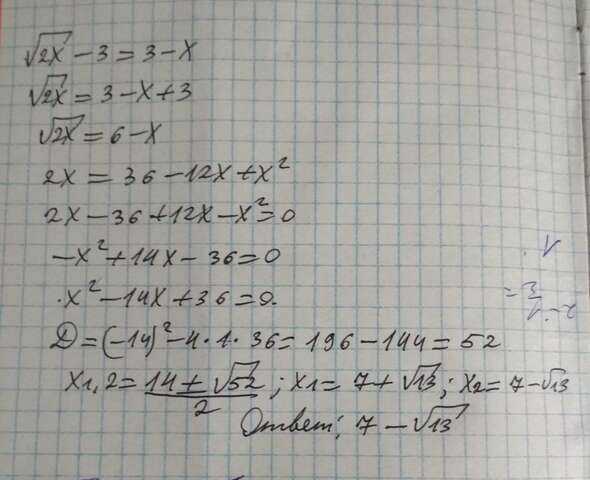 √2x - 3 = 3 - x
√2x = 3 - x + 3
√2x = 6 - x
2x = 36 - 12x + x²
2x - 36 + 12x - x² = 0
-x² + 14x - 36 = 0
x² - 14x + 36 = 0.
D = (-14)² - 4·1·36 = 196 - 144 = 52
x1,2 = (14 ± √52)/2 ; x1 = 7 + √13 ; x2 = 7 - √13
Ответ: 7 - √13